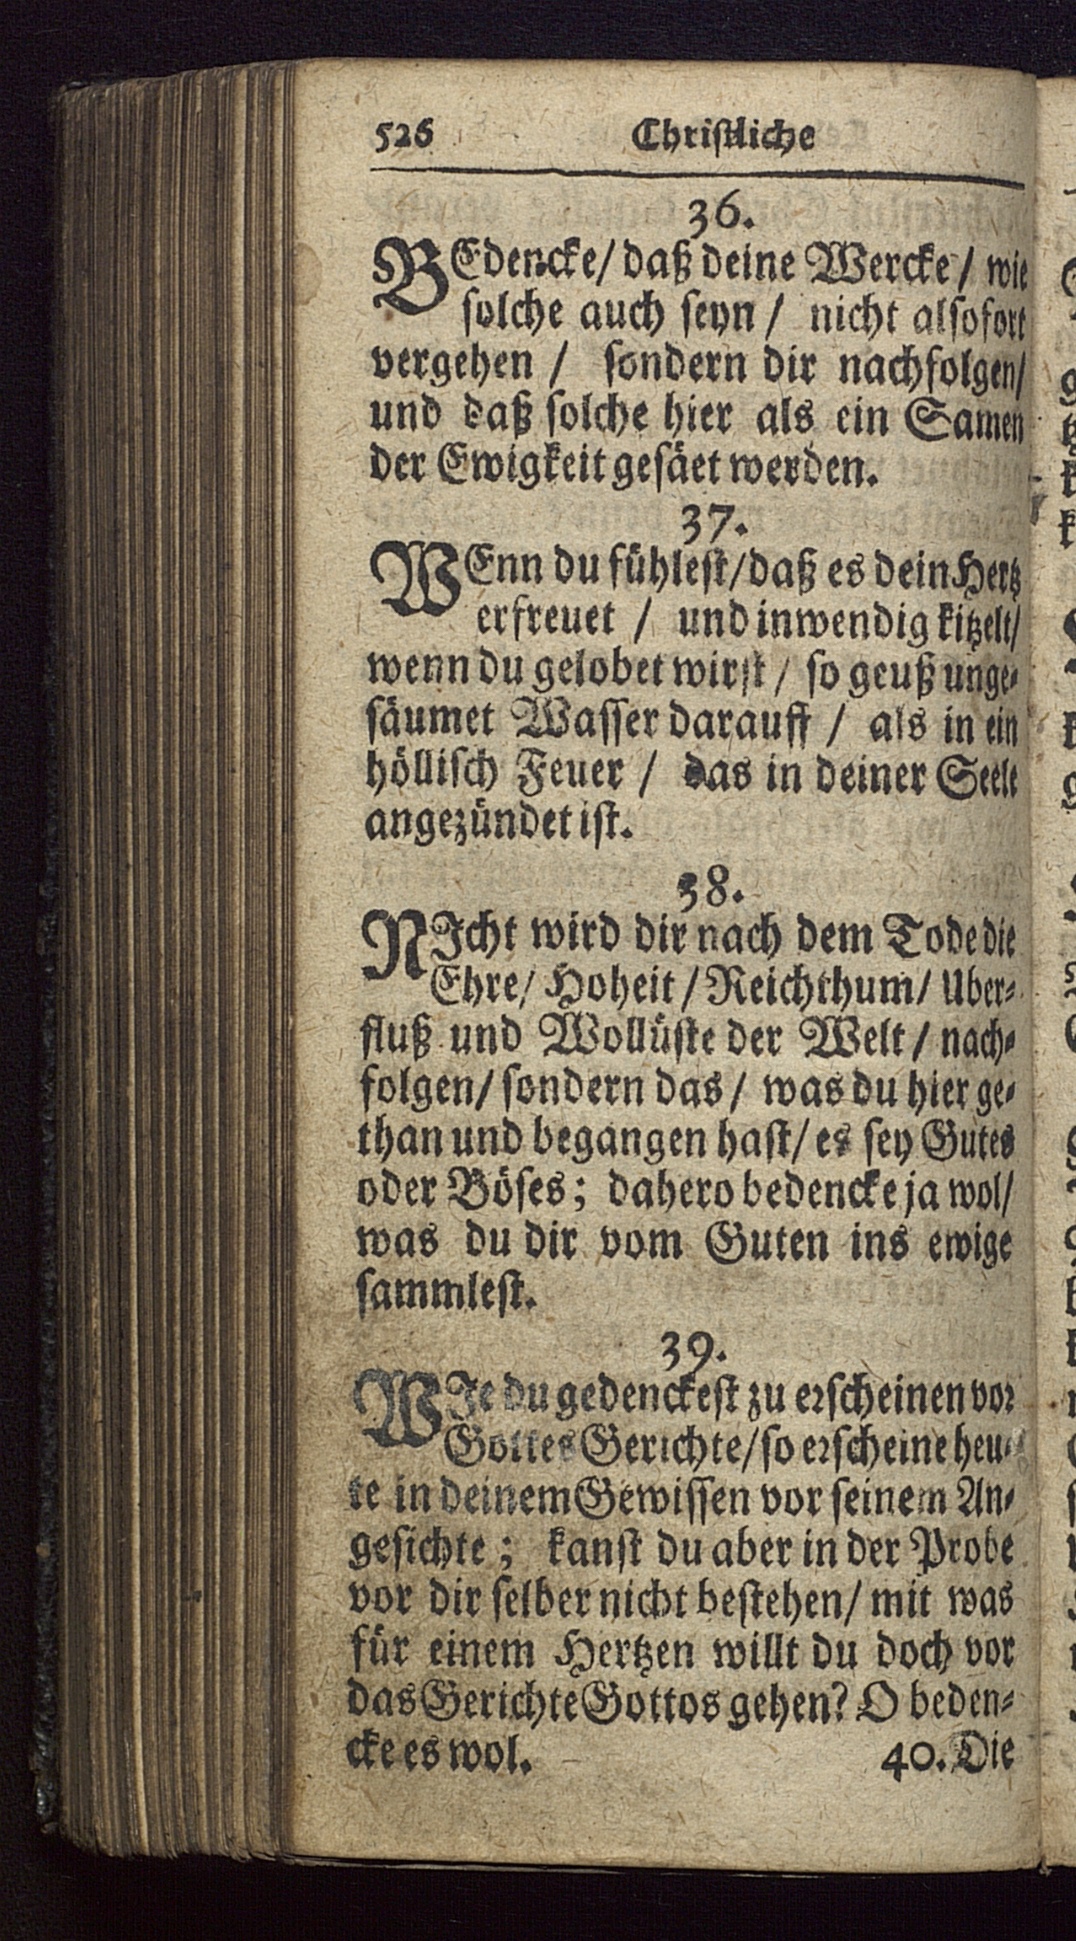 526 Christliche
36.
BEdencke/ daß deine Wercke/ wie
solche auch seyn/ nicht alsofort
vergehen/ sondern dir nachfolgen/
und daß solche hier als ein Samen
der Ewigkeit gesäet werden.
37.
WEnn du fühlest/ daß es dein Hertz
erfreuet/ und inwendig kitzelt/
wenn du gelobet wirst/ so geuß unge-
säumet Wasser darauff/ als in ein
höllisch Feuer/ das in deiner Seele
angezündet ist.
38.
NIcht wird dir nach dem Tode die
Ehre/ Hoheit/ Reichthum/ Uber-
fluß und Wollüste der Welt/ nach-
folgen/ sondern das/ was du hier ge-
than und begangen hast/ es sey Gutes
oder Böses; dahero bedencke ja wol/
was du dir vom Guten ins ewige
sammlest.
39.
WIe du gedenckest zu erscheinen vor
Gottes Gerichte/ so erscheine heu-
te in deinem Gewissen vor seinem An-
gesichte; kanst du aber in der Probe
vor dir selber nicht bestehen/ mit was
für einem Hertzen willt du doch vor
das Gerichte Gottos gehen? O beden-
cke es wol. 40. Die